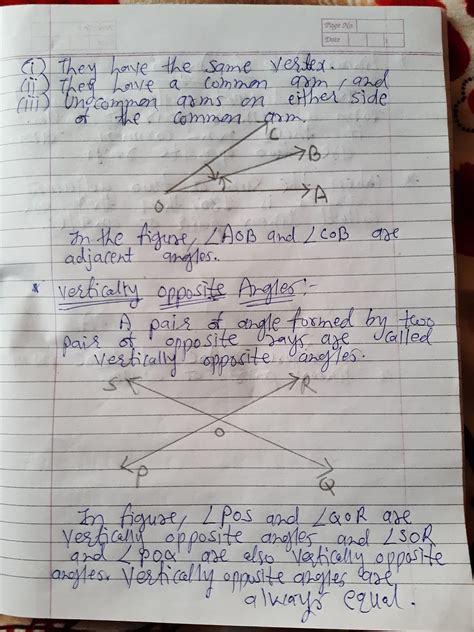 Page No.
Date
(i) They have the same vertex.
(ii) They have a common arm, and
(iii) Uncommon arms on either side
of the common arm.
C
B
A
O
In the figure, ∠AOB and ∠COB are
adjacent angles.
* Vertically opposite Angles:-
A pair of angle formed by two
pair of opposite rays are called
vertically opposite angles.
S
R
O
P
Q
In figure, ∠POS and ∠QOR are
vertically opposite angles and ∠SOR
and ∠POQ are also vertically opposite
angles. Vertically opposite angles are
always equal.